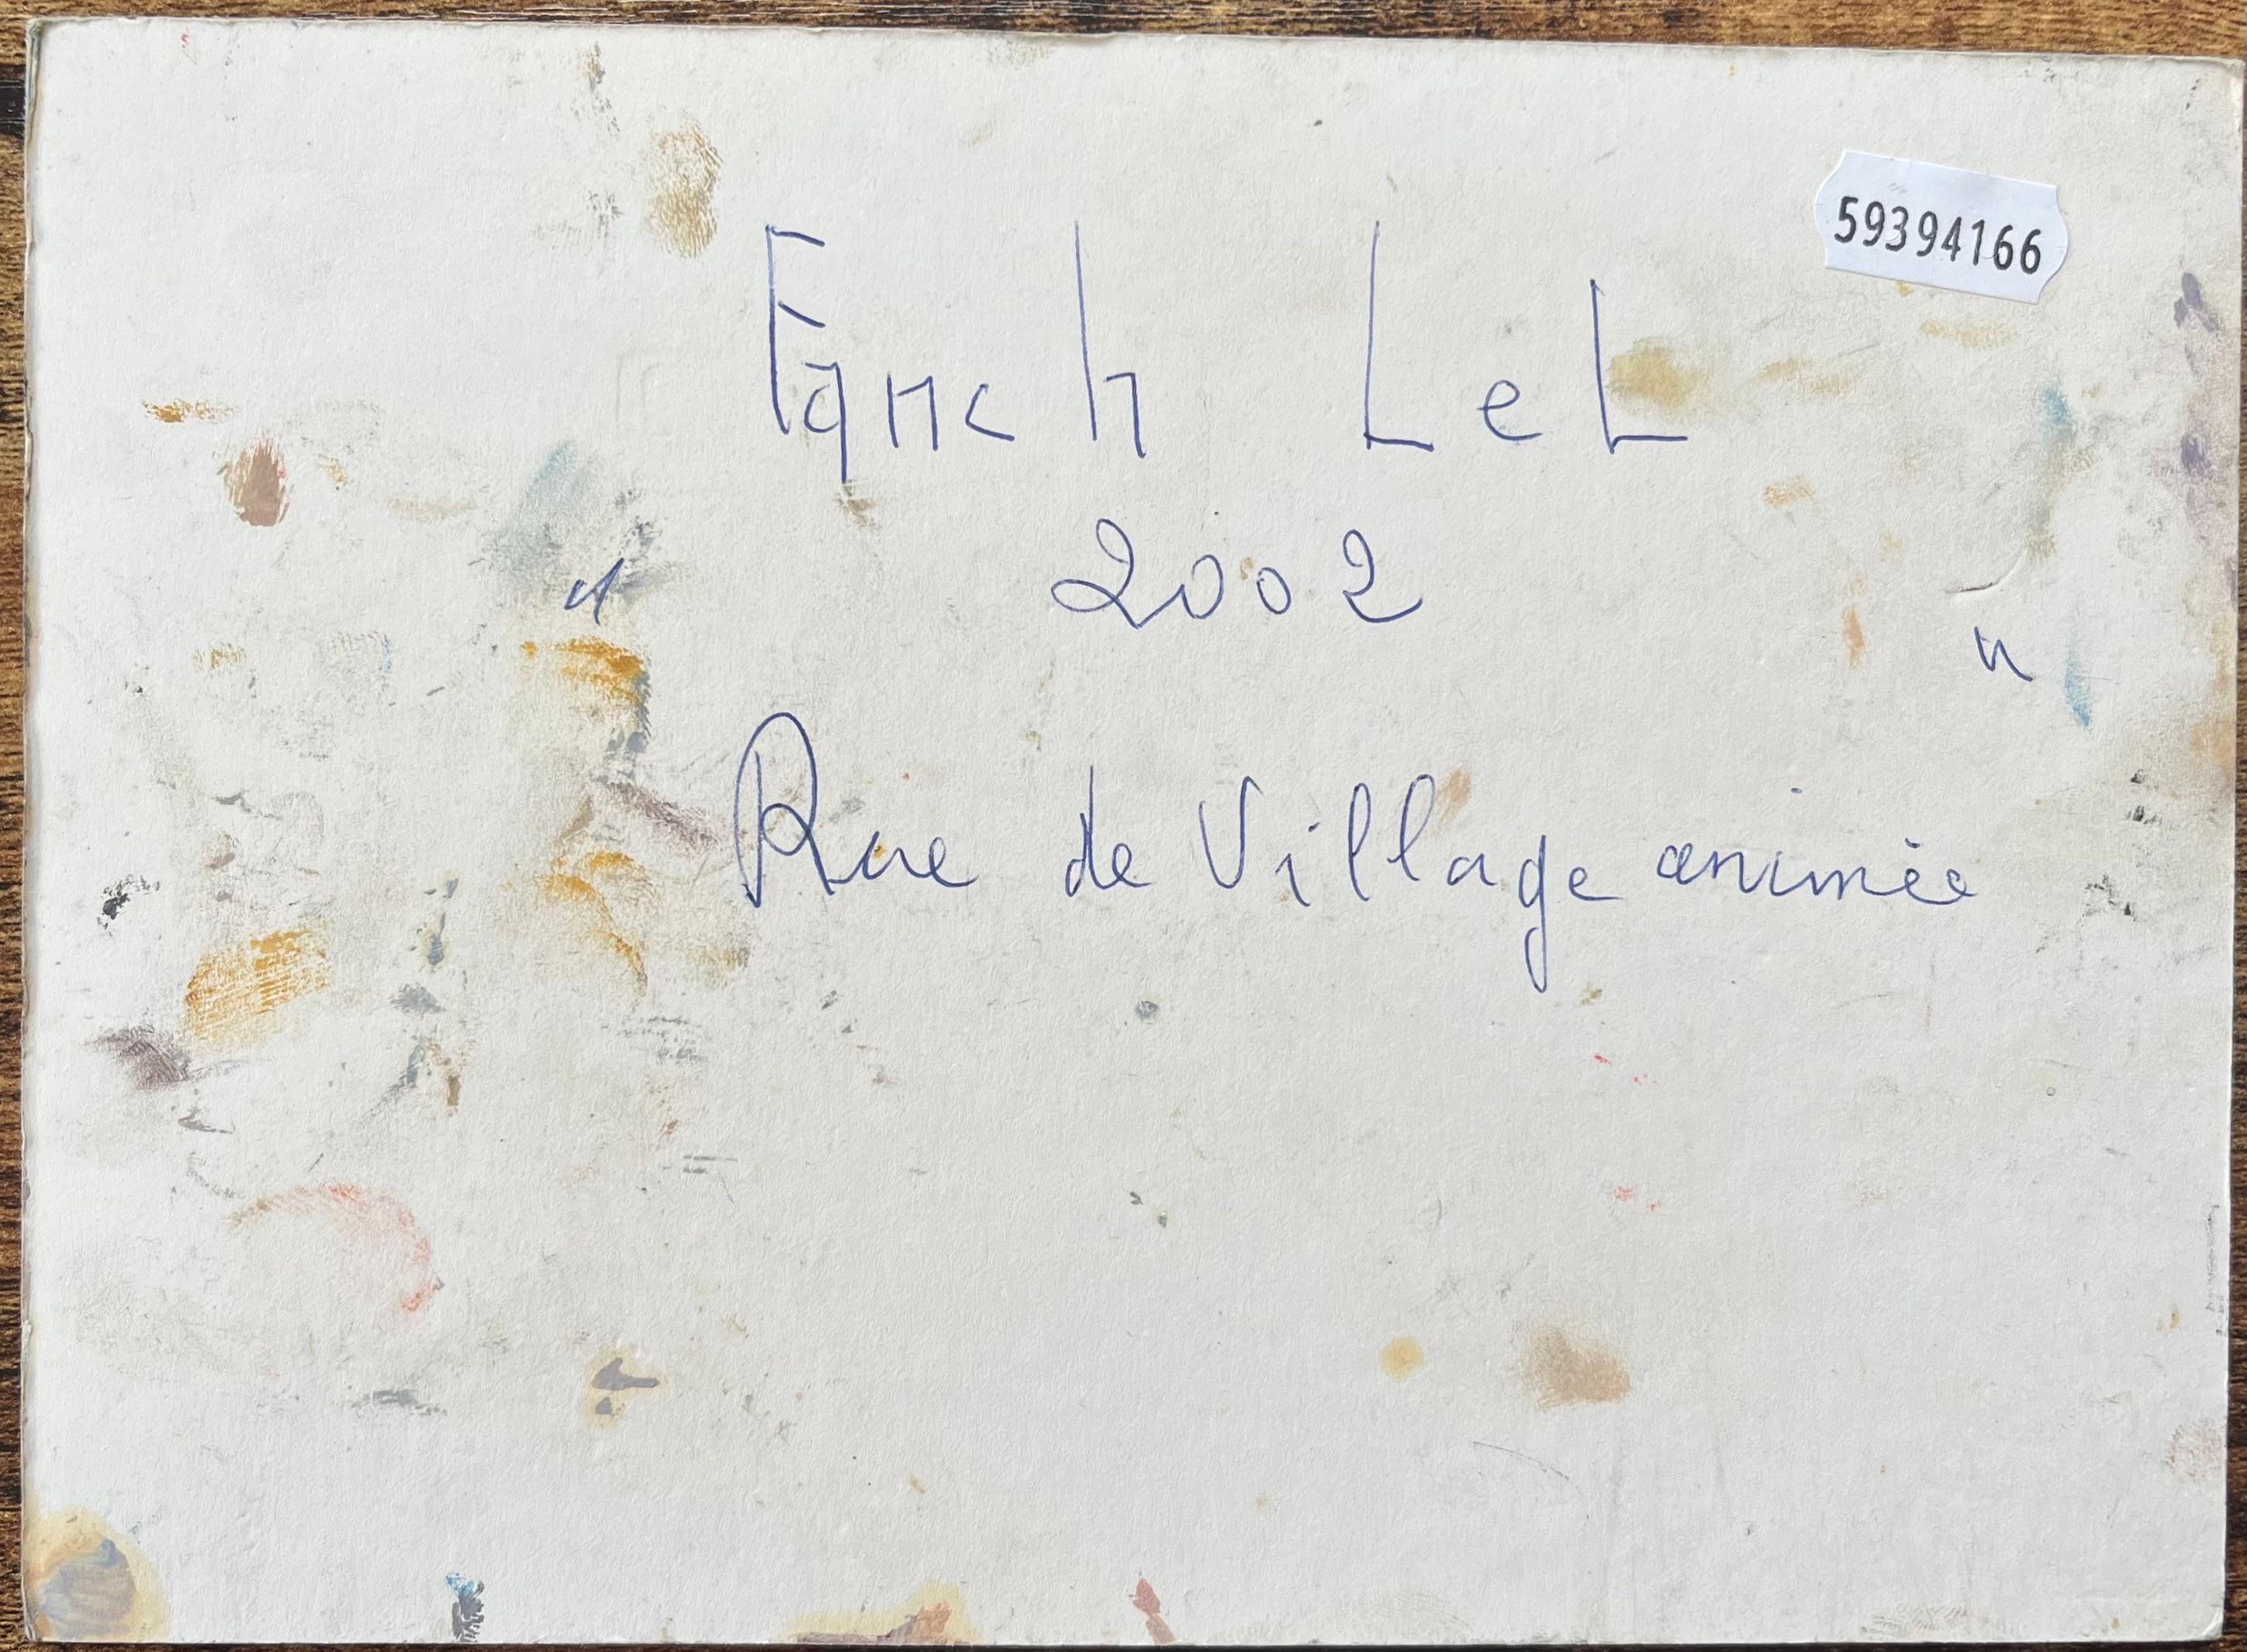 59394166
Fanch LeL
2002
" "
Rue de Village animée